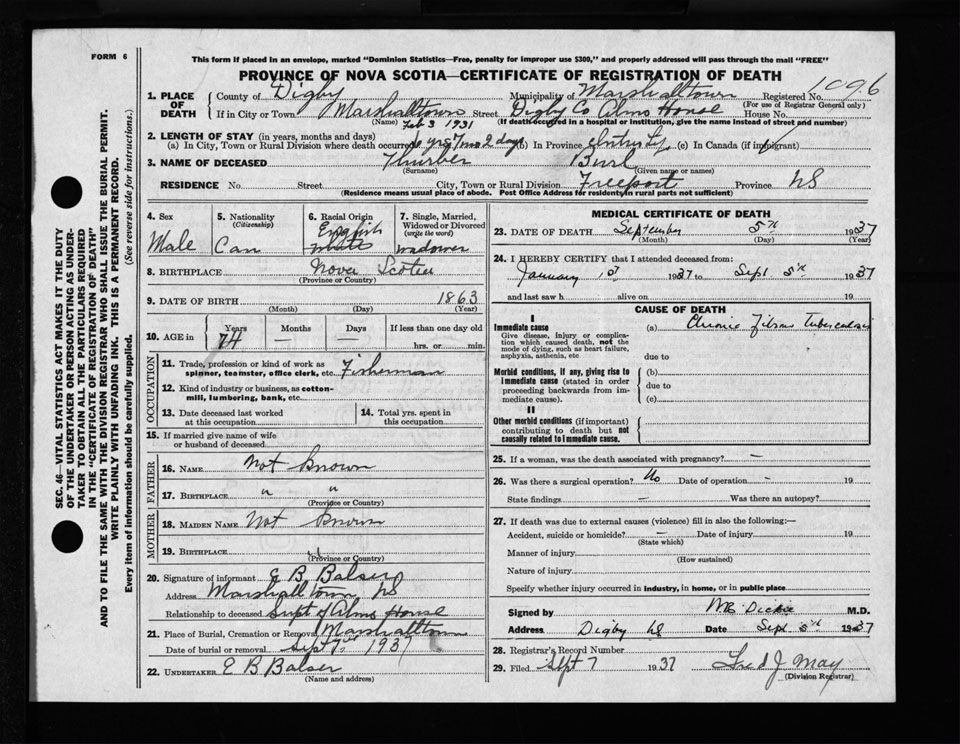 FORM 6
This form if placed in an envelope, marked "Dominion Statistics—Free, penalty for improper use $300," and properly addressed will pass through the mail "FREE"
PROVINCE OF NOVA SCOTIA—CERTIFICATE OF REGISTRATION OF DEATH
1. PLACE OF DEATH
County of Digby Municipality of Marshalltown Registered No. 1096
(For use of Registrar General only)
If in City or Town Marshalltown Street Digby Co Alms House House No.
(Name) (If death occurred in a hospital or institution, give the name instead of street and number)
Feb 3 1931
2. LENGTH OF STAY (in years, months and days)
(a) In City, Town or Rural Division where death occurred 6 yrs 7 mo 2 days (b) In Province Entirely (c) In Canada (if immigrant)
3. NAME OF DECEASED Thurber Burl
(Surname) (Given name or names)
RESIDENCE No. Street City, Town or Rural Division Freeport Province NS
(Residence means usual place of abode. Post Office Address for residents in rural parts not sufficient)
4. Sex
Male
5. Nationality
(Citizenship)
Can
6. Racial Origin
English
White
7. Single, Married, Widowed or Divorced
(write the word)
widower
8. BIRTHPLACE Nova Scotia
(Province or Country)
9. DATE OF BIRTH 1863
(Month) (Day) (Year)
10. AGE in
Years Months Days If less than one day old
74 — — hrs. or min.
OCCUPATION
11. Trade, profession or kind of work as spinner, teamster, office clerk, etc. Fisherman
12. Kind of industry or business, as cotton-mill, lumbering, bank, etc.
13. Date deceased last worked at this occupation
14. Total yrs. spent in this occupation
15. If married give name of wife or husband of deceased
FATHER
16. NAME Not Known
17. BIRTHPLACE " "
(Province or Country)
MOTHER
18. MAIDEN NAME Not Known
19. BIRTHPLACE "
(Province or Country)
20. Signature of informant E B Balser
Address Marshalltown NS
Relationship to deceased Supt of Alms House
21. Place of Burial, Cremation or Removal Marshalltown
Date of burial or removal Sept 7 1937
22. UNDERTAKER E B Balser
(Name and address)
MEDICAL CERTIFICATE OF DEATH
23. DATE OF DEATH September 5th 1937
(Month) (Day) (Year)
24. I HEREBY CERTIFY that I attended deceased from:
January 1st 1937 to Sept 5th 1937
and last saw h alive on 19
CAUSE OF DEATH
I
Immediate cause (a) Chronic Fibrous Tuberculosis
Give disease, injury or complication which caused death, not the mode of dying, such as heart failure, asphyxia, asthenia, etc
due to
Morbid conditions, if any, giving rise to immediate cause (stated in order proceeding backwards from immediate cause).
(b)
due to
(c)
II
Other morbid conditions (if important) contributing to death but not causally related to immediate cause.
25. If a woman, was the death associated with pregnancy? —
26. Was there a surgical operation? No Date of operation — 19
State findings — Was there an autopsy?
27. If death was due to external causes (violence) fill in also the following:—
Accident, suicide or homicide? — Date of injury 19
(State which)
Manner of injury
(How sustained)
Nature of injury
Specify whether injury occurred in industry, in home, or in public place
Signed by Dickie M.D.
Address Digby NS Date Sept 5th 1937
28. Registrar's Record Number
29. Filed Sept 7 1937 Fred J May
(Division Registrar)
SEC. 46—VITAL STATISTICS ACT MAKES IT THE DUTY
OF THE UNDERTAKER OR PERSON ACTING AS UNDER-
TAKER TO OBTAIN ALL THE PARTICULARS REQUIRED
IN THE "CERTIFICATE OF REGISTRATION OF DEATH"
AND TO FILE THE SAME WITH THE DIVISION REGISTRAR WHO SHALL ISSUE THE BURIAL PERMIT.
WRITE PLAINLY WITH UNFADING INK. THIS IS A PERMANENT RECORD.
Every item of information should be carefully supplied. (See reverse side for instructions.)